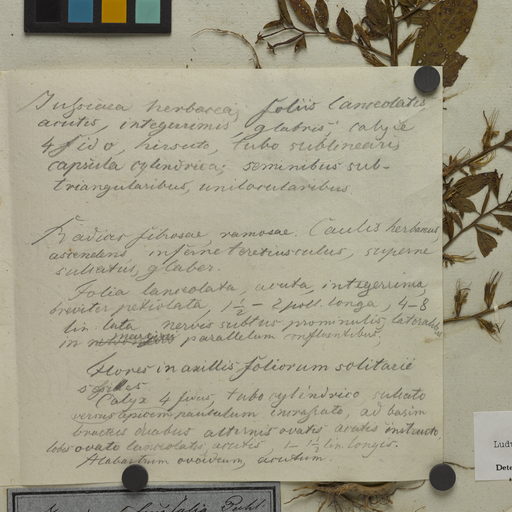 Jussiaea herbacea, foliis lanceolatis,
acutis, integerrimis, glabris; calyce
4 fido, hirsuto, tubo sublineari;
capsula cylindrica; seminibus sub-
triangularibus, unilocularibus
Radices fibrosae ramosae. Caulis herbaceus,
ascendens, inferne teretiusculus, superne
sulcatus, glaber.
Folia lanceolata, acuta, integerrima,
breviter petiolata, 1½ - 2 poll. longa, 4-8
lin. lata, nervis subtus prominulis, lateralibus
in parallelum confluentibus.
Flores in axillis foliorum solitarii
sessiles
Calyx 4 fidus, tubo cylindrico, sulcato
versus apicem paululum incrassato, ad basim
bracteis duabus alternis ovatis acutis instructo,
lobis ovato lanceolatis, acutis 1 - 1½ lin. longis.
Alabastrum ovoideum, acutum.
Ludw
Dete